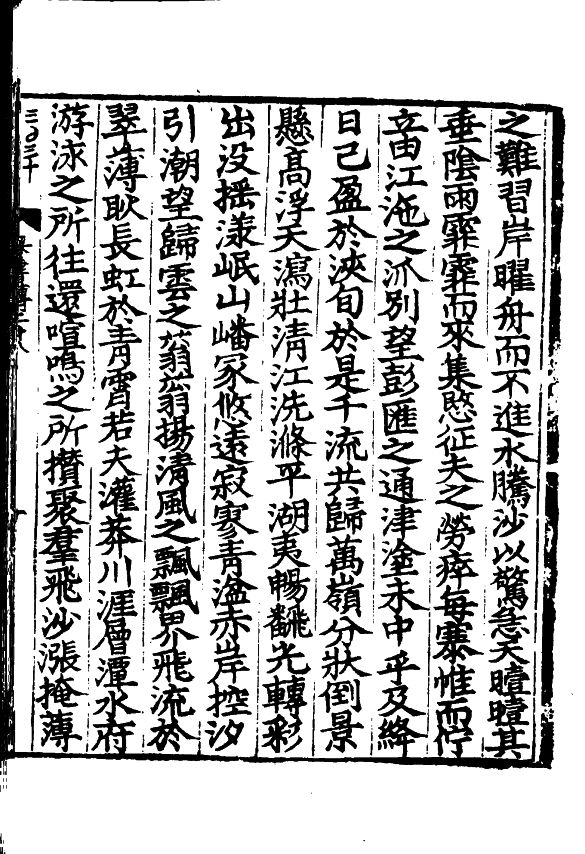 之難習岸曜舟而不進水騰沙以驚急天曀曀其
垂陰雨霏霏而來集愍征夫之勞瘁每褰帷而佇
立由江沲之派別望彭匯之通津塗未中乎及絳
日已盈於浹旬於是千流共歸萬嶺分狀倒景
懸高浮天瀉壯清江洗滌平湖夷暢翻光轉彩
出没揺漾岷山嶓冢悠遠寂寥青湓赤岸控汐
引潮望歸雲之蓊蓊揚清風之飄飄界飛流於
翠薄耿長虹於青霄若夫灌莽川涯層潭水府
游泳之所往還喧鳴之所攢聚羣飛沙漲掩薄